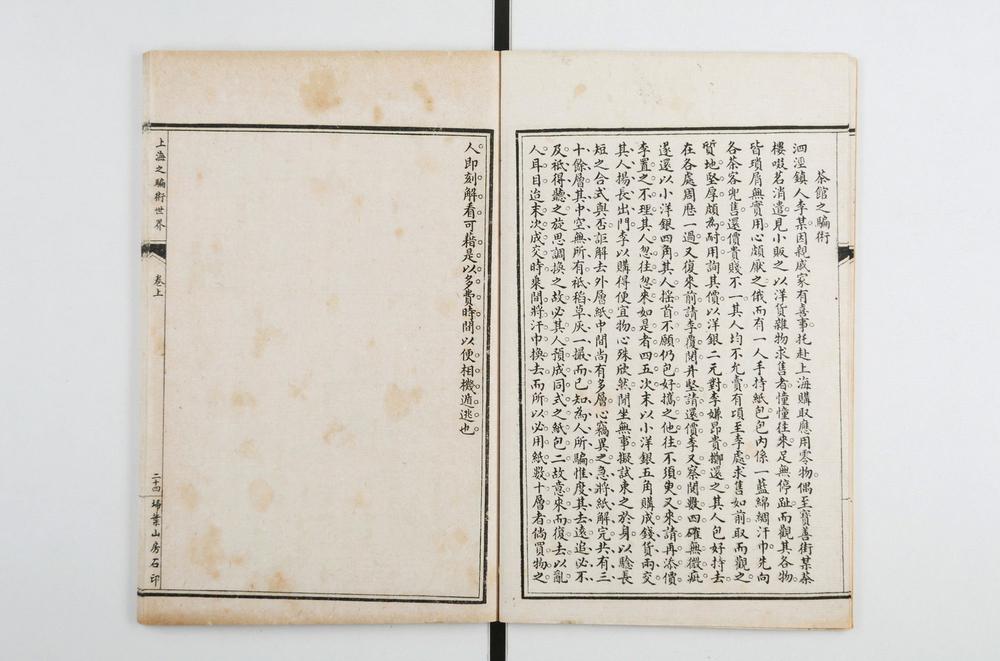 茶館之騙術
泗涇鎮人李某因親戚家有喜事托赴上海購取應用零物偶至寶善街某茶
樓啜茗消遣見小販之以洋貨雜物求售者憧憧往來足無停趾而觀其各物
皆瑣屑無實用心頗厭之俄而有一人手持紙包包內係一藍綿綢汗巾先向
各茶客兜售還價貴賤不一其人均不允賣有頃至李處求售如前取而觀之
質地堅厚頗為耐用詢其價以洋銀二元對李嫌昂貴擲還之其人包好持去
在各處周歷一過又復來前請李覆閱并堅請還價李又察閱數四確無微疵
遂還以小洋銀四角其人搖首不願仍包好攜之他往不須臾又來請再添價
李置之不理其人忽往忽來如是者四五次末以小洋銀五角購成錢貨兩交
其人揚長出門李以購得便宜物心殊欣然閒坐無事擬試束之於身以驗長
短之合式與否詎解去外層紙中間尚有多層心竊異之急將紙解完共有三
十餘層其中空無所有祇稻草灰一撮而已知為人所騙惟度其去遠追必不
及祇得聽之旋思調換之故必其人預成同式之紙包二故意來而復去以亂
人耳目迨末次成交時乘間將汗巾換去而所以必用紙數十層者倘買物之
人即刻解看可藉是以多費時間以便相機遁逃也
上海之騙術世界
卷上
二十四
埽葉山房石印